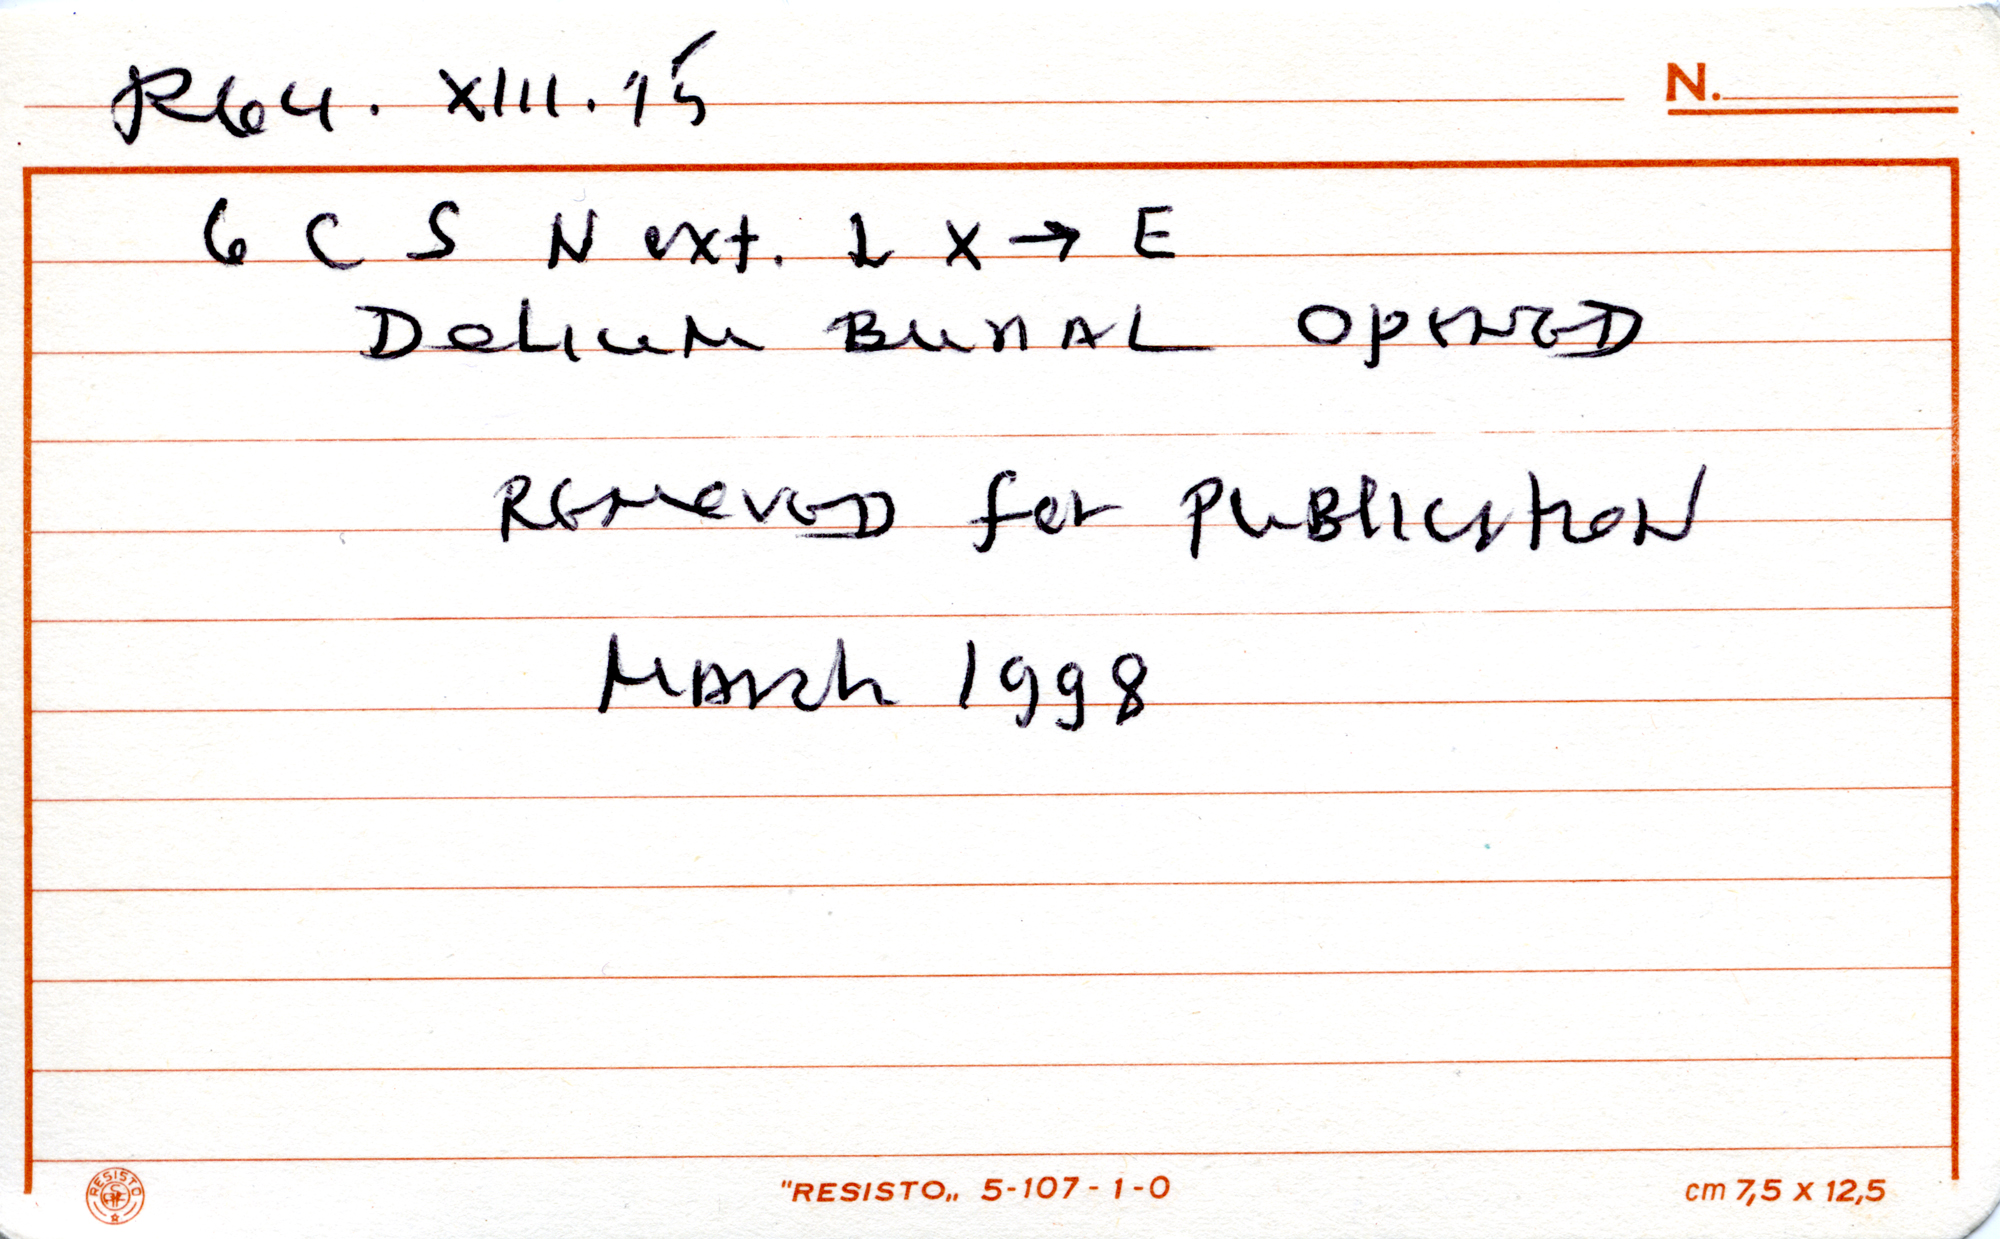 R64. XIII. 15
N.
6 C S N ext. 1 X → E
Dolium Burial opened
Removed for publication
March 1998
RESISTO
"RESISTO„ 5-107-1-0
cm 7,5 x 12,5